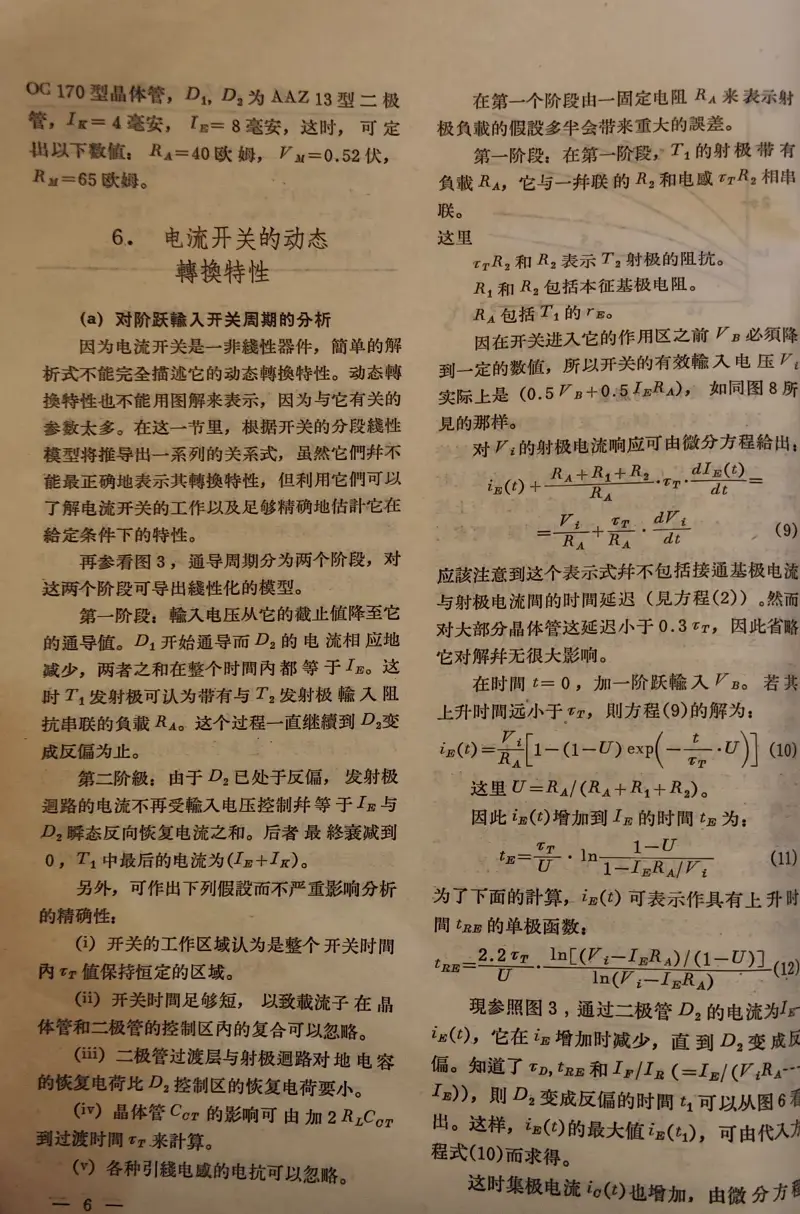 OC 170 型晶体管，D₁，D₂ 为 AAZ 13 型二极
管，I_K＝4 毫安， I_E＝8 毫安，这时， 可定
出以下数値： R_A＝40 欧姆， V_M＝0.52 伏，
R_M＝65 欧姆。
6. 电流开关的动态
轉換特性
(a) 对阶跃輸入开关周期的分析
因为电流开关是一非綫性器件，簡单的解
析式不能完全描述它的动态轉換特性。动态轉
換特性也不能用图解来表示，因为与它有关的
参数太多。在这一节里，根据开关的分段綫性
模型将推导出一系列的关系式，虽然它們幷不
能最正确地表示其轉換特性，但利用它們可以
了解电流开关的工作以及足够精确地估計它在
給定条件下的特性。
再参看图 3，通导周期分为两个阶段，对
这两个阶段可导出綫性化的模型。
第一阶段：輸入电压从它的截止値降至它
的通导値。D₁ 开始通导而 D₂ 的电流相应地
减少，两者之和在整个时間內都等于 I_E。这
时 T₁ 发射极可认为带有与 T₂ 发射极輸入阻
抗串联的負載 R_A。这个过程一直继續到 D₂变
成反偏为止。
第二阶級：由于 D₂ 已处于反偏， 发射极
迴路的电流不再受輸入电压控制幷等于 I_E 与
D₂ 瞬态反向恢复电流之和。后者最終衰减到
0，T₁ 中最后的电流为(I_E＋I_K)。
另外，可作出下列假設而不严重影响分析
的精确性：
(i) 开关的工作区域认为是整个开关时間
內 τ_T 値保持恒定的区域。
(ii) 开关时間足够短， 以致載流子在晶
体管和二极管的控制区內的复合可以忽略。
(iii) 二极管过渡层与射极迴路对地电容
的恢复电荷比 D₂ 控制区的恢复电荷要小。
(iv) 晶体管 C_CT 的影响可由加 2 R_L C_CT
到过渡时間 τ_T 来計算。
(v) 各种引綫电感的电抗可以忽略。
— 6 —
在第一个阶段由一固定电阻 R_A 来表示射
极負載的假設多半会带来重大的誤差。
第一阶段：在第一阶段，T₁ 的射极带有
負載 R_A，它与一幷联的 R₂ 和电感 τ_T R₂ 相串
联。
这里
τ_T R₂ 和 R₂ 表示 T₂ 射极的阻抗。
R₁ 和 R₂ 包括本征基极电阻。
R_A 包括 T₁ 的 r_E。
因在开关进入它的作用区之前 V_B 必須降
到一定的数値，所以开关的有效輸入电压 V_i
实际上是 (0.5 V_B＋0.5 I_E R_A)， 如同图 8 所
見的那样。
对 V_i 的射极电流响应可由微分方程給出：
i_E(t)＋(R_A＋R₁＋R₂)/R_A · τ_T · dI_E(t)/dt＝
＝V_i/R_A＋τ_T/R_A · dV_i/dt (9)
应該注意到这个表示式幷不包括接通基极电流
与射极电流間的时間延迟（見方程(2)）。然而
对大部分晶体管这延迟小于 0.3 τ_T，因此省略
它对解幷无很大影响。
在时間 t＝0，加一阶跃輸入 V_B。若其
上升时間远小于 τ_T，則方程(9)的解为：
i_E(t)＝V_i/R_A[1－(1－U) exp(－t/τ_T · U)] (10)
这里 U＝R_A/(R_A＋R₁＋R₂)。
因此 i_E(t)增加到 I_E 的时間 t_E 为：
t_E＝τ_T/U · ln (1－U)/(1－I_E R_A/V_i) (11)
为了下面的計算，i_E(t) 可表示作具有上升时
間 t_RE 的单极函数：
t_RE＝2.2 τ_T/U · ln[(V_i－I_E R_A)/(1－U)]/ln(V_i－I_E R_A) (12)
現参照图 3，通过二极管 D₂ 的电流为I_E－
i_E(t)，它在 i_E 增加时减少，直到 D₂ 变成反
偏。知道了 τ_D, t_RE 和 I_F/I_R (＝I_E/(V_i R_A－
I_E))，則 D₂ 变成反偏的时間 t₁ 可以从图 6 看
出。这样，i_E(t)的最大値 i_E(t₁)，可由代入方
程式(10)而求得。
这时集极电流 i_C(t)也增加，由微分方程